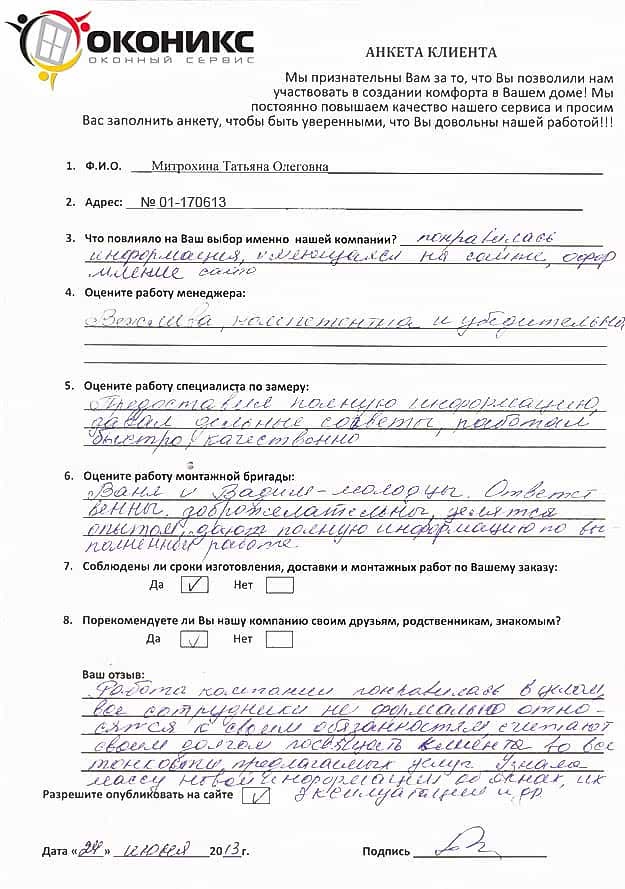 ОКОНИКС
ОКОННЫЙ СЕРВИС
АНКЕТА КЛИЕНТА
Мы признательны Вам за то, что Вы позволили нам
участвовать в создании комфорта в Вашем доме! Мы
постоянно повышаем качество нашего сервиса и просим
Вас заполнить анкету, чтобы быть уверенными, что Вы довольны нашей работой!!!
1. Ф.И.О. Митрохина Татьяна Олеговна
2. Адрес: № 01-170613
3. Что повлияло на Ваш выбор именно нашей компании? понравилась
информация, имеющаяся на сайте, офор
мление сайта
4. Оцените работу менеджера:
Вежлива, компетентна и убедительна
5. Оцените работу специалиста по замеру:
Предоставил полную информацию,
давал дельные советы, работал
быстро, качественно
6. Оцените работу монтажной бригады:
Ваня и Вадим - молодцы. Ответст
венны, доброжелательны, делятся
опытом, дают полную информацию по вы-
полненной работе.
7. Соблюдены ли сроки изготовления, доставки и монтажных работ по Вашему заказу:
Да ✓ Нет
8. Порекомендуете ли Вы нашу компанию своим друзьям, родственникам, знакомым?
Да ✓ Нет
Ваш отзыв:
Работа компании понравилась в целом,
все сотрудники не формально отно-
сятся к своим обязанностям, считают
своим долгом посвятить клиента во все
тонкости предлагаемых услуг. Узнала
массу новой информации об окнах, их
Разрешите опубликовать на сайте ✓ эксплуатации и др.
Дата «24» июня 2013 г. Подпись